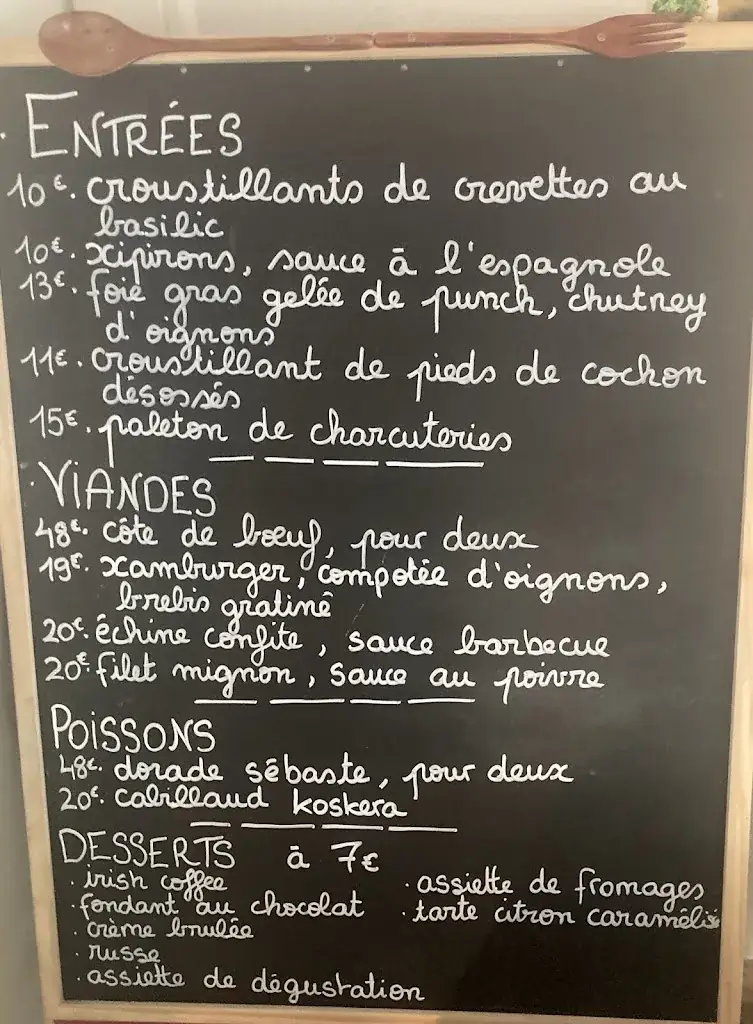 ENTRÉES
10€. croustillants de crevettes au
basilic
10€. xipirons, sauce à l'espagnole
13€. foie gras gelée de punch, chutney
d'oignons
11€. croustillant de pieds de cochon
désossés
15€. paleton de charcuteries
VIANDES
48€. côte de bœuf, pour deux
19€. xamburger, compotée d'oignons,
brebis gratiné
20€. échine confite, sauce barbecue
20€. filet mignon, sauce au poivre
POISSONS
48€. dorade sébaste, pour deux
20€. cabillaud koskera
DESSERTS à 7€
. irish coffee
. fondant au chocolat
. crème brulée
. russe
. assiette de dégustation
. assiette de fromages
. tarte citron caramélisé